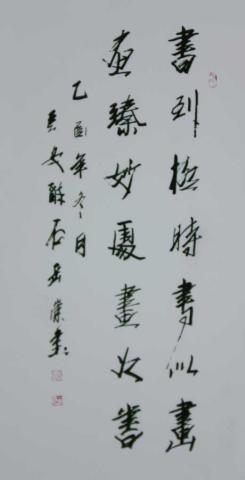 書到極時書似畫
畫臻妙處畫如書
乙酉年冬月
長安醉石岳崇書